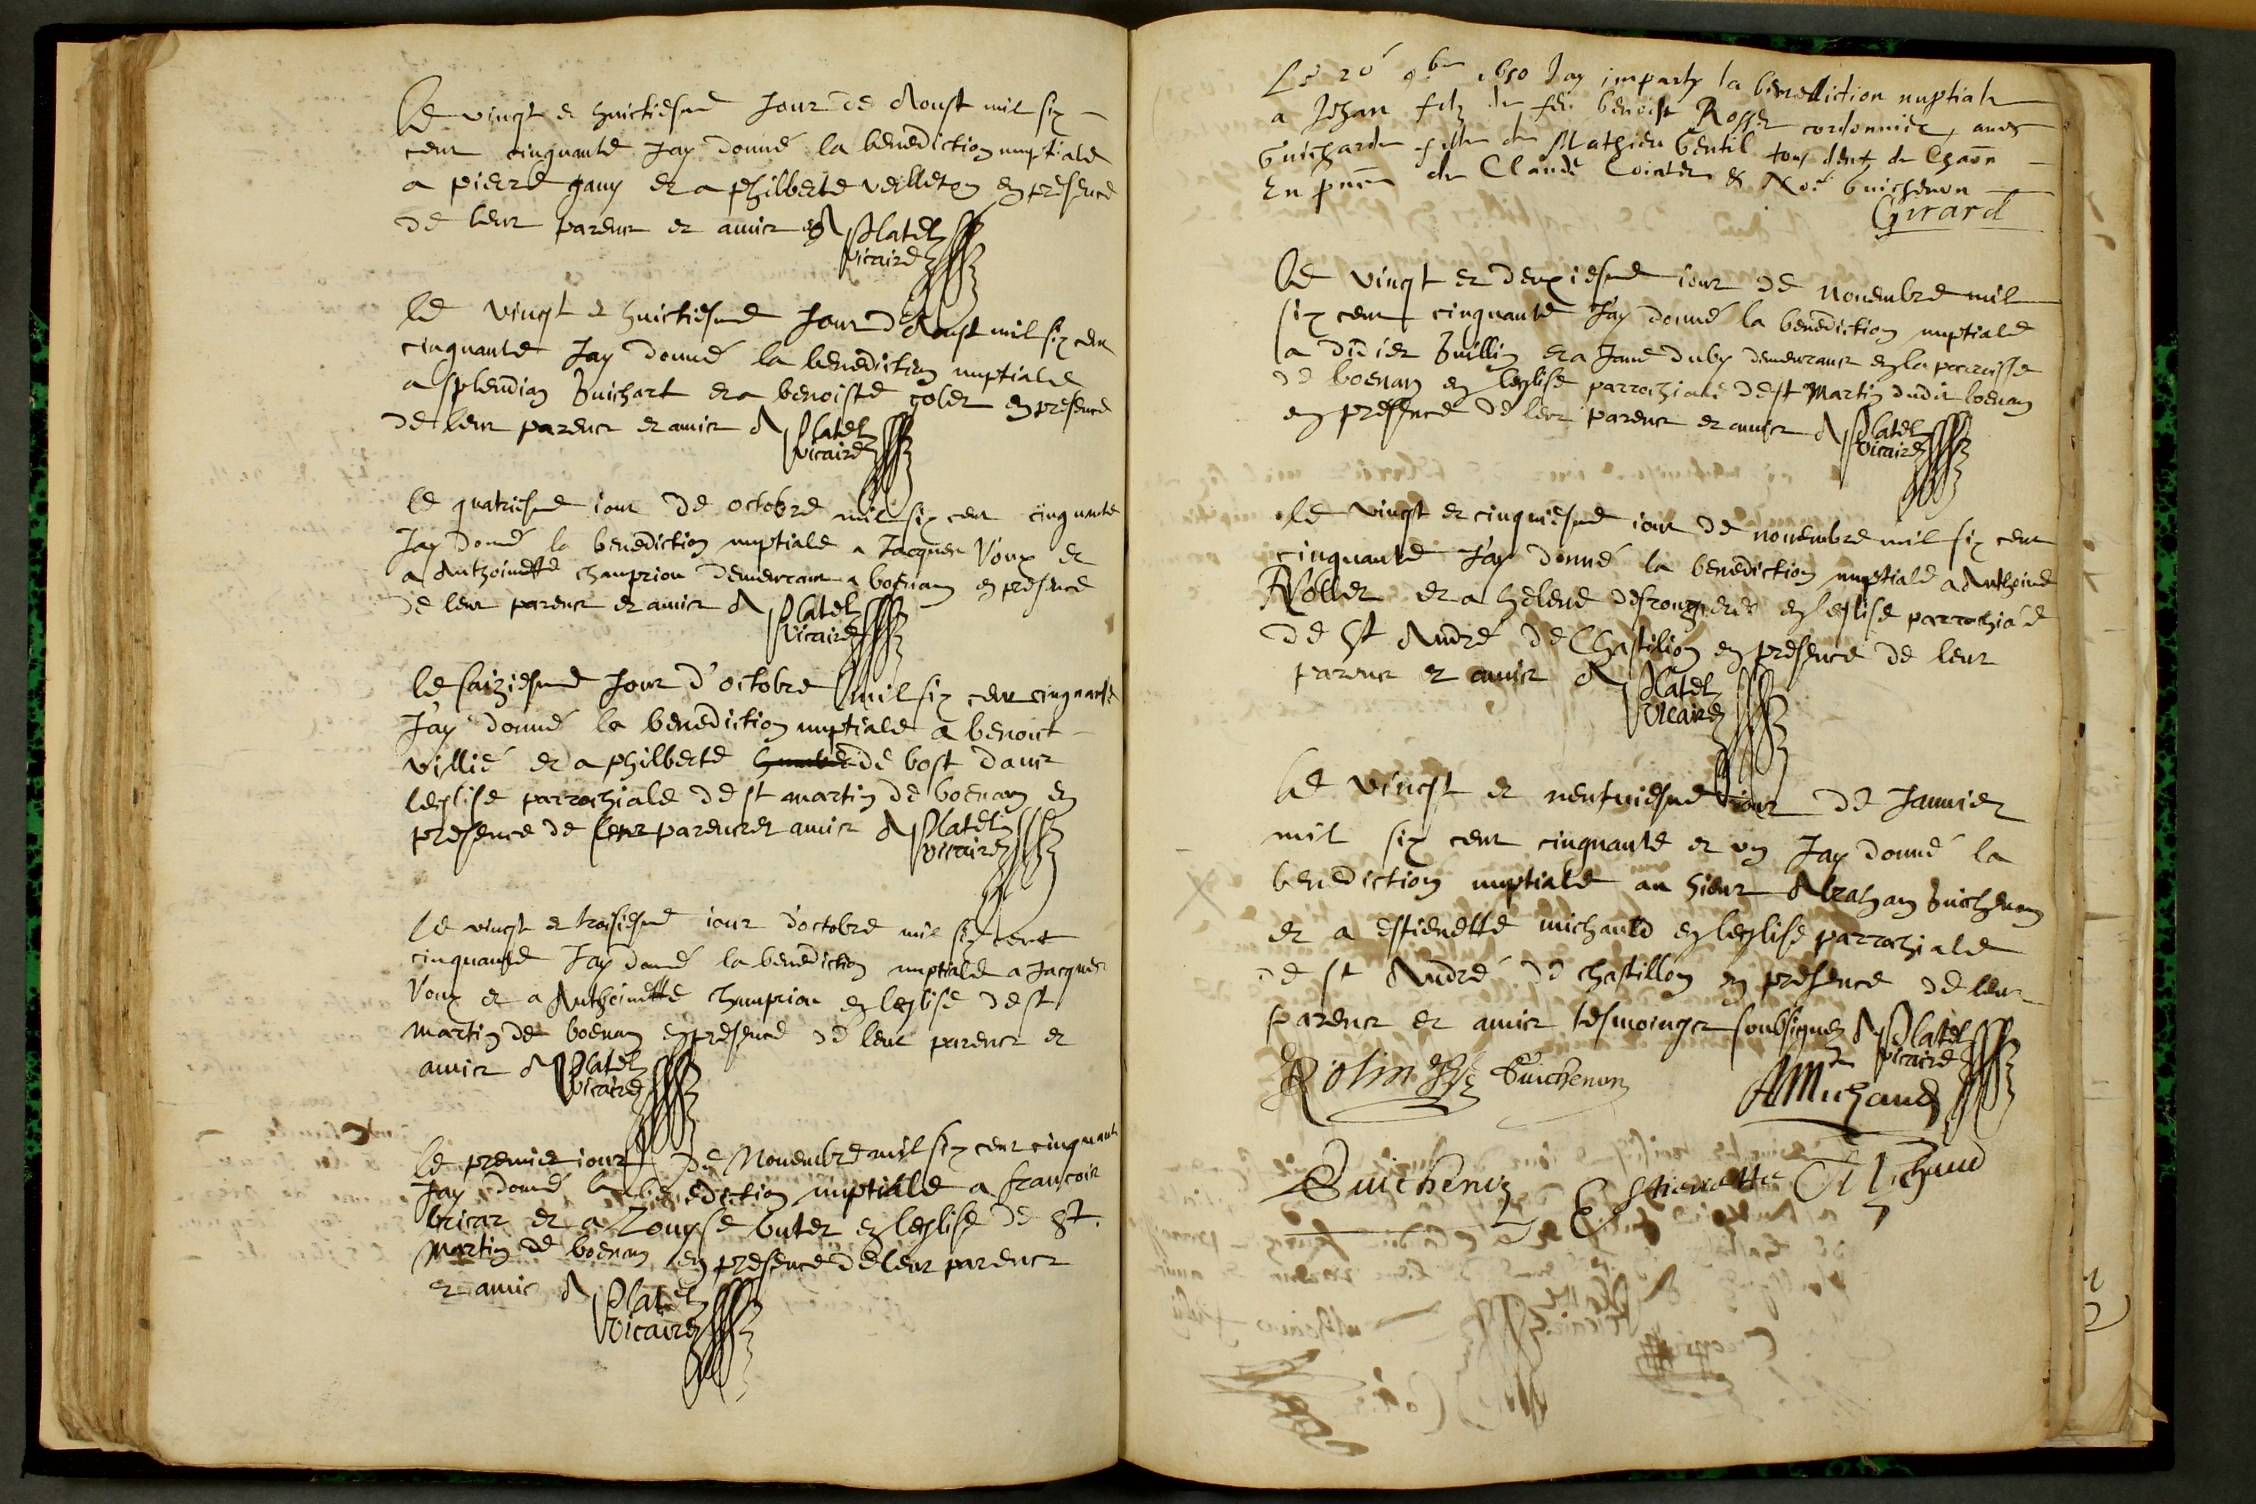 Le vingt et huictiesme Jour de Aoust mil six
cent cinquante Jay donné la benediction nuptiale
a pierre gauy et a philberte veilleton en presence
de leur parens et amis A Platel
vicaire
le vingt et huictiesme Jour de Aoust mil six cen
cinquante Jay donné la benediction nuptiale
a splendian Guichart et a benoiste colet en presence
de leur parens et amis A Platel
vicaire
le quatriesme iour de octobre mil six cent cinquante
Jay donné la benediction nuptiale a Jacques Voux et
a Anthoinette chanprion demeurans a boenan en presence
de leur parens et amis A Platel
vicaire
le saiziesme Jour d'octobre mil six cens cinquante
J'ay donné la benediction nuptiale a benoict
villié et a philberte de bost dans
leglise parrochiale de st martin de boenan en
presence de leur parens et amis A Platel
vicaire
le vingt et troisiesme iour d'octobre mil six cent
cinquante Jay donné la benediction nuptiale a Jacques
Voux et a Anthoinette chanprion en leglise de st
martin de boenan en presence de leur parens et
amis A Platel
vicaire
le premier iour de Nouembre mil six cent cinquante
Jay donné la benediction nuptialle a francois
bricar et a Louyse buter en leglise de St.
Martin de boenan en presence de leur parens
et amis A Platel
vicaire
Le 20e 9bre 1650 Jay imparty la benediction nuptiale
a Jehan filz de feu benoist Rosset cordonnier, auec
Guicharde fille de Mathieu Gentil tous deux de Chaõn
En pñce de Claude Cointet & Noë Guichenon
Girard
le vingt et deuxiesme iour de nouembre mil
six cent cinquante J'ay donné la benediction nuptiale
a didier Guillin et a Jane duby demeurans en la parroisse
de boenan en leglise parrochiale de st Martin dudit boenan
en presence de leur parens et amis A Platel
vicaire
le vingt et cinquiesme iour de nouembre mil six cent
cinquante J'ay donné la benediction nuptiale a Anthoine
Rollet et a helene desrougeres en leglise parrochiale
de St André de Chastilion en presence de leur
parens et amis A Platel
vicaire
Le vingt et neufuiesme iour de Januier
mil six cent cinquante et un Jay donné la
benediction nuptiale au sieur Abraham Guichenon
et a estienette michauld en leglise parrochiale
de st André de chastillon en presence de leur
parens et amis tesmoings soubsignez A Platel
vicaire
Guichenon
AMichaud
Guichenon Estienette Michaud